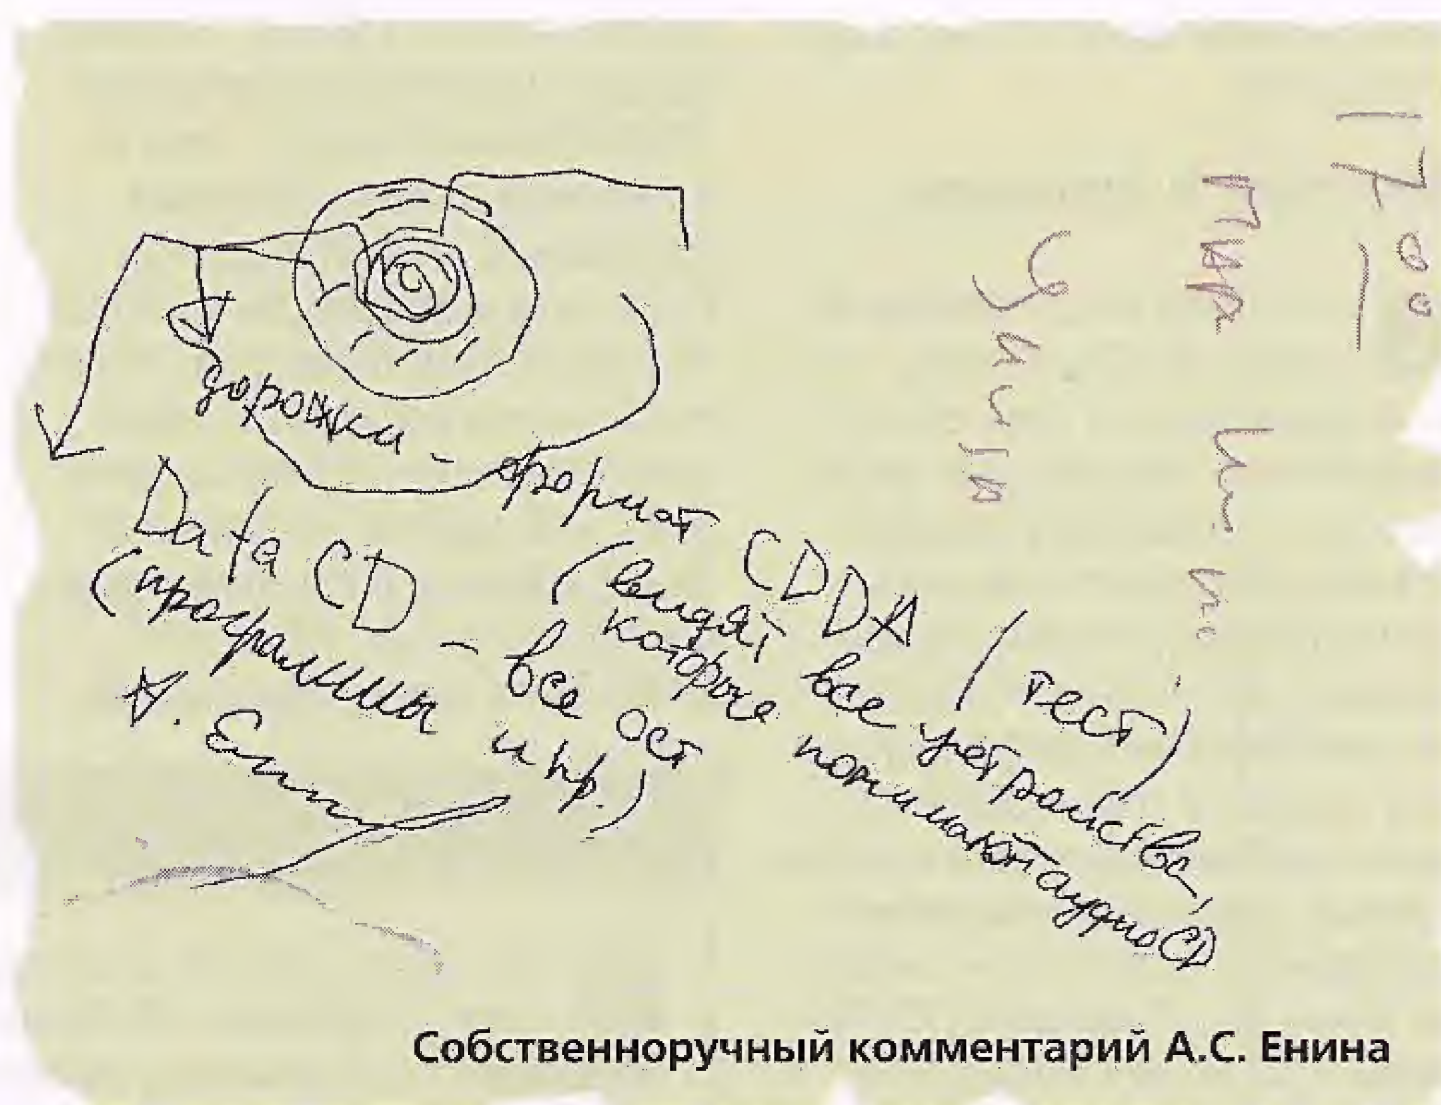 дорожки - формат CDDA (тест)
(видят все устройства,
которые понимают аудио CD
Data CD - все ост
(программы и пр.)
А. Енин
1700
Собственноручный комментарий А.С. Енина